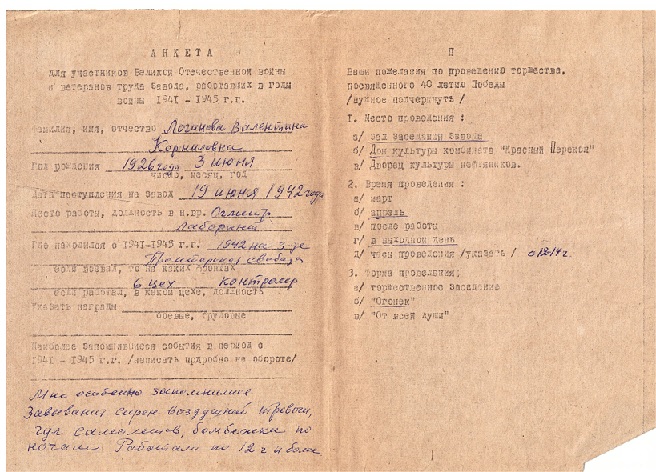 АНКЕТА
для участников Великой Отечественной войны
и ветеранов труда завода, работавших в годы
войны 1941 - 1945 г.г.
Фамилия, имя, отчество Логинова Валентина
Корниловна
Год рождения 1926 года 3 июня
число, месяц, год
Дата поступления на завод 19 июня 1942 года
Место работы, должность в н.вр.
Где находился с 1941-1945 г.г. 1942 на з-де
если воевал, то на каких фронтах
6 цех контролер
если работал, в каком цехе, должность
Указать награды
боевые, трудовые
Наиболее запомнившиеся события в период с
1941 - 1945 г.г. /написать подробно на обороте/
Мне особенно запомнились
Завывание сирен воздушной тревоги,
гул самолетов, бомбежки по
ночам Работали по 12 ч и более
П
Ваши пожелания по проведению торжества,
посвященного 40 летию Победы
/нужное подчеркнуть/
1. Место проведения :
а/ зал заседаний завода
б/ Дом культуры комбината "Красный Перекоп"
в/ Дворец культуры нефтяников.
2. Время проведения :
а/ март
б/ апрель
в/ после работы
г/ в выходной день
д/ часы проведения /указать/ с 12 ч.
3. Форма проведения:
а/ торжественное заседание
б/ "Огонек"
в/ "От всей души"